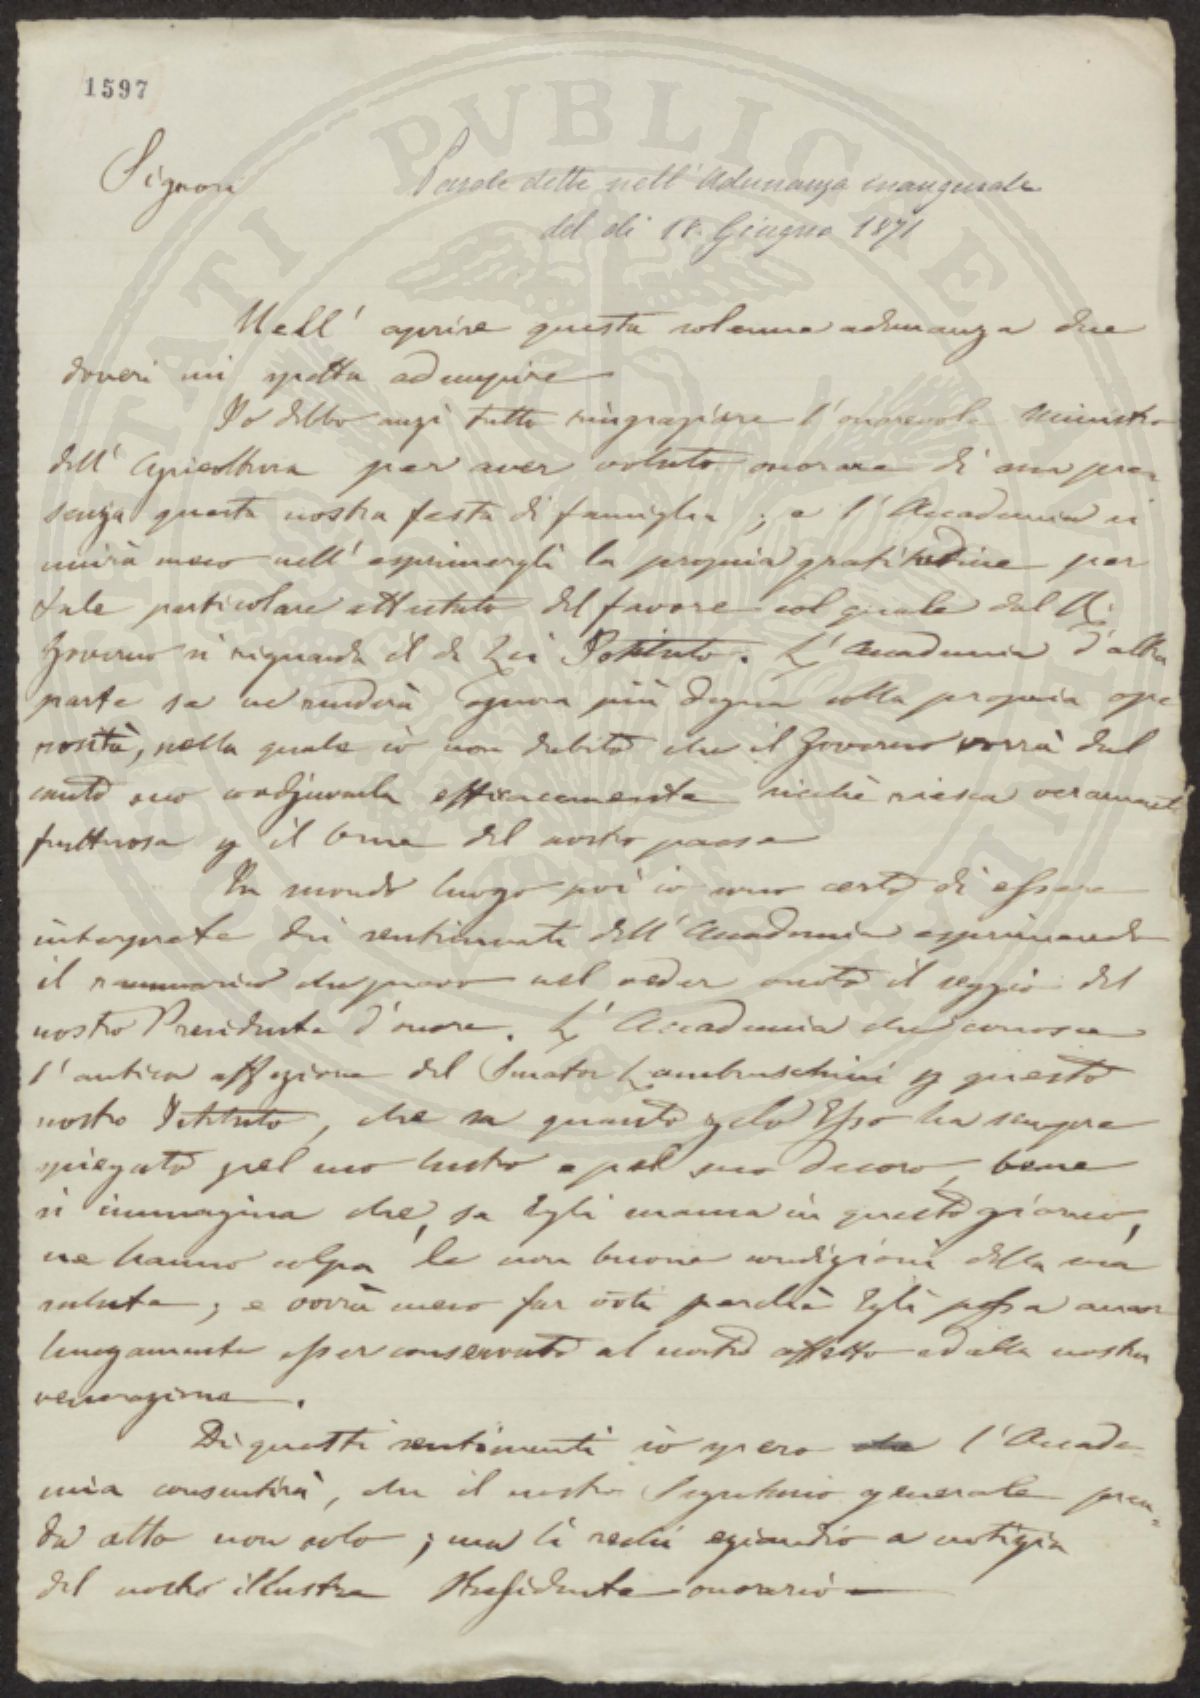 1597
Signori
Parole dette nell' Adunanza inaugurale
del dì 18. Giugno 1871
Nell' aprire questa solenne adunanza due
doveri mi spetta adempire
Io debbo anzi tutto ringraziare l'onorevole Ministro
dell' Agricoltura per aver voluto onorare di sua pre=
senza questa nostra festa di famiglia; e l' Accademia si
unirà meco nell' esprimergli la propria gratitudine per
tale particolare attestato del favore col quale dal R.
Governo si riguarda il di Lei Istituto. L' Accademia d'altra
parte se ne renderà ognora più degna colla propria ope
rosità, nella quale io non dubito che il Governo vorrà dal
canto suo coadjuvarla efficacemente sicchè riesca veramente
fruttuosa p il bene del nostro paese
In secondo luogo poi io sono certo di essere
interprete dei sentimenti dell' Accademia esprimendo
il rammarico che provo nel veder vuoto il seggio del
nostro Presidente d'onore. L' Accademia che conosce
l'antica affezione del Senator Lambruschini p questo
nostro Istituto, che sa quanto zelo Esso ha sempre
spiegato pel suo lustro e pel suo decoro, bene
si immagina che, se Egli manca in questo giorno,
ne hanno colpa le non buone condizioni della sua
salute; e vorrà meco far voti perchè Egli possa ancor
lungamente esser conservato al nostro affetto ed alla nostra
venerazione.
Di questi sentimenti io spero che l'Accade=
mia consentirà, che il nostro Segretario generale pren=
da atto non solo; ma li rechi eziandio a notizia
del nostro illustre Presidente onorario